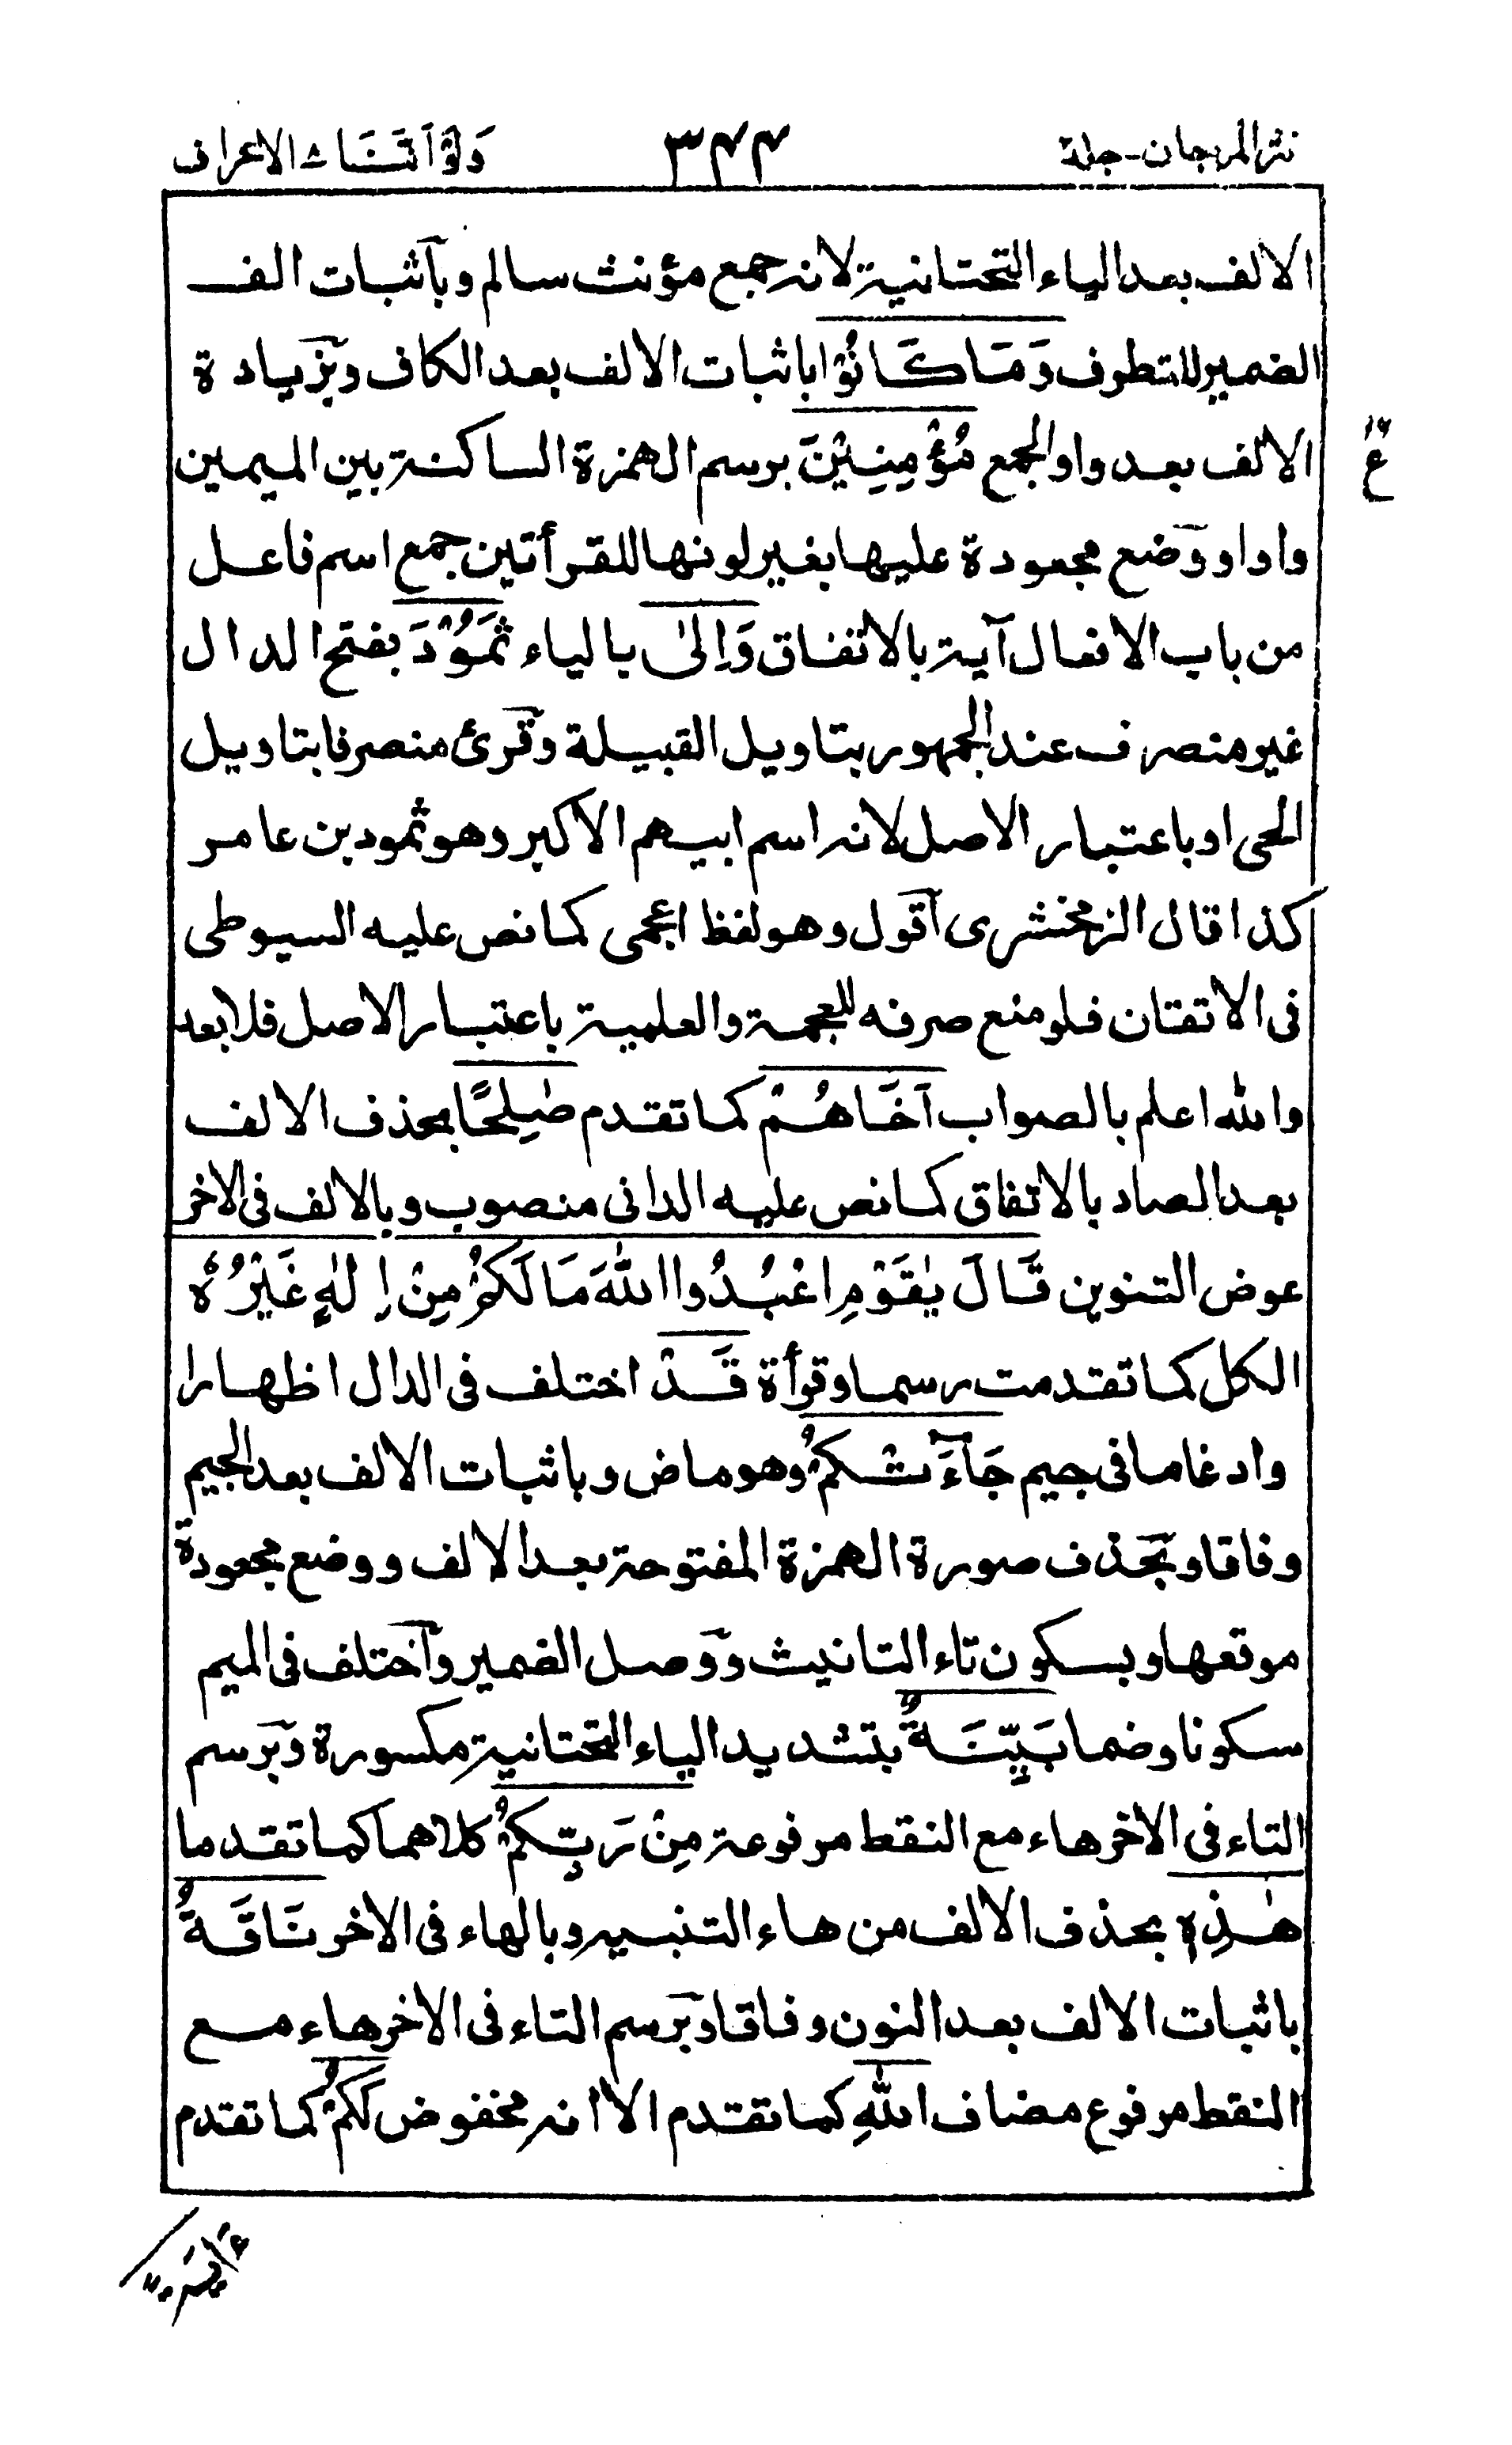 نثر المرجان - جلد ۲
۳۴۴
وَلَوْ اَنَّنَا ٨ الاعراف
الالف بعد الياء التحتانية لانه جمع مؤنث سالم وباثبات الف
الضمير للتطرف وَمَا كَانُوْا باثبات الالف بعد الكاف وبزيادة
الالف بعد واو الجمع مُؤْمِنِيْنَ برسم الهمزة الساكنة بين الميمين
واوا ووضع مجعودة عليها بغير لونها للقرأتين جمع اسم فاعل
من باب الافعال آية بالاتفاق وَاِلٰى بالياء ثَمُوْدَ بفتح الدال
غير منصرف عند الجمهور بتاويل القبيلة وقرئ منصرفا بتاويل
الحى او باعتبار الاصل لانه اسم ابيهم الاكبر وهو ثمود بن عامر
كذا قال الزمخشرى اقول وهو لفظ اعجمى كما نص عليه السيوطى
فى الاتقان فلو منع صرفه للعجمة والعلمية باعتبار الاصل فلا بعد
والله اعلم بالصواب اَخَاهُمْ كما تقدم صٰلِحًا بحذف الالف
بعد الصاد بالاتفاق كما نص عليه الدانى منصوب وبالالف فى الاخر
عوض التنوين قَالَ يٰقَوْمِ اعْبُدُوا اللّٰهَ مَا لَكُمْ مِنْ اِلٰهٍ غَيْرُهٗ
الكل كما تقدمت رسما وقرأة قَدْ اختلف فى الدال اظهارا
وادغاما فى جيم جَآءَتْكُمْ وهو ماض وباثبات الالف بعد الجيم
وفاقا وبحذف صورة الهمزة المفتوحة بعد الالف ووضع مجعودة
موقعها وبسكون تاء التانيث ووصل الضمير واختلف فى الميم
سكونا وضما بَيِّنَةٌ بتشديد الياء التحتانية مكسورة وبرسم
التاء فى الاخر هاء مع النقط مرفوعة مِنْ رَبِّكُمْ كلاهما كما تقدما
هٰذِهٖ بحذف الالف من هاء التنبيه وبالهاء فى الاخر نَاقَةُ
باثبات الالف بعد النون وفاقا وبرسم التاء فى الاخر هاء مع
النقط مرفوع مضاف اللّٰهِ كما تقدم الا انه مخفوض لَكُمْ كما تقدم
ع
اٰيَةً